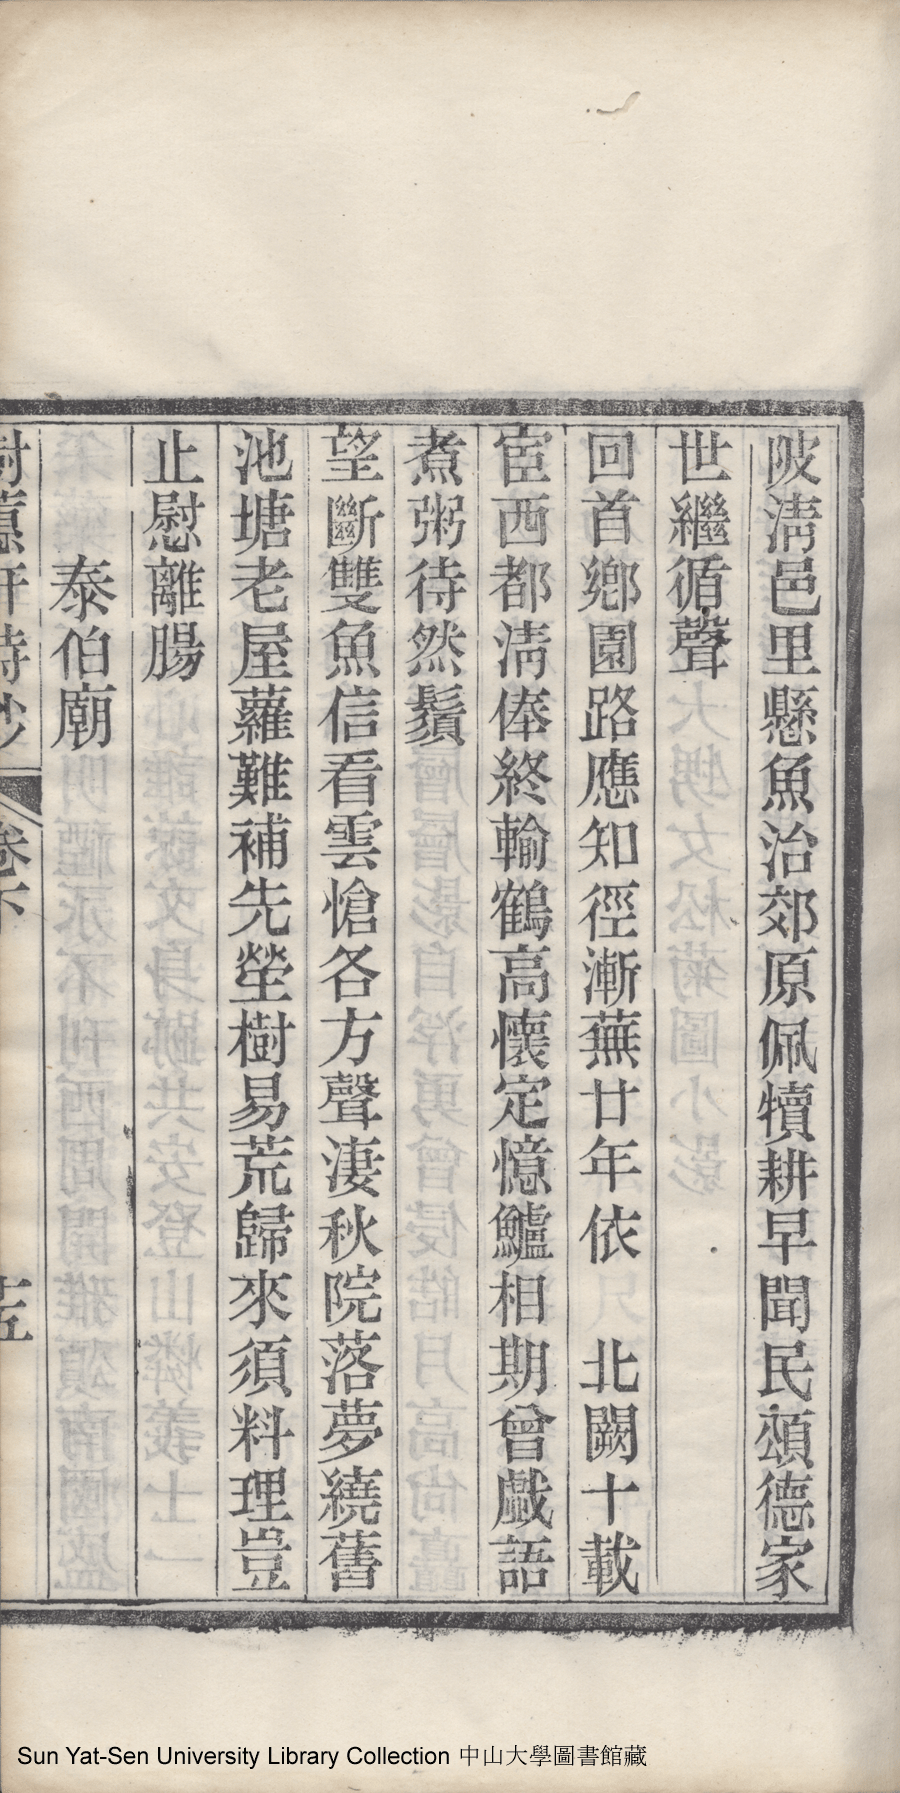 陂淸邑里懸魚治郊原佩犢耕早聞民頌德家
世繼循聲
回首鄉園路應知徑漸蕪廿年依 北闕十載
宦西都淸俸終輸鶴高懷定憶鱸相期曾戲語
煮粥待然鬚
望斷雙魚信看雲愴各方聲淒秋院落夢繞舊
池塘老屋蘿難補先塋樹易荒歸來須料理豈
止慰離腸
泰伯廟
卷下
Sun Yat-Sen University Library Collection 中山大學圖書館藏